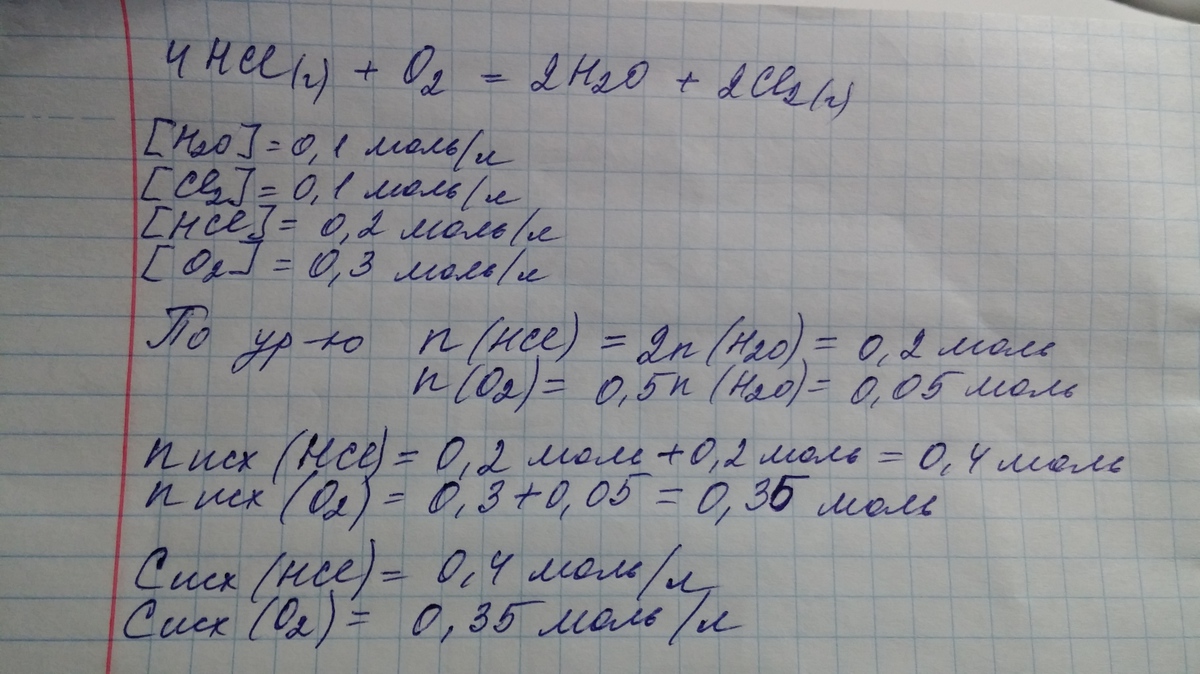 4HCl(г) + O₂ = 2H₂O + 2Cl₂(г)
[H₂O] = 0,1 моль/л
[Cl₂] = 0,1 моль/л
[HCl] = 0,2 моль/л
[O₂] = 0,3 моль/л
По ур-ю n(HCl) = 2n(H₂O) = 0,2 моль
n(O₂) = 0,5n(H₂O) = 0,05 моль
n исх (HCl) = 0,2 моль + 0,2 моль = 0,4 моль
n исх (O₂) = 0,3 + 0,05 = 0,35 моль
C исх (HCl) = 0,4 моль/л
C исх (O₂) = 0,35 моль/л